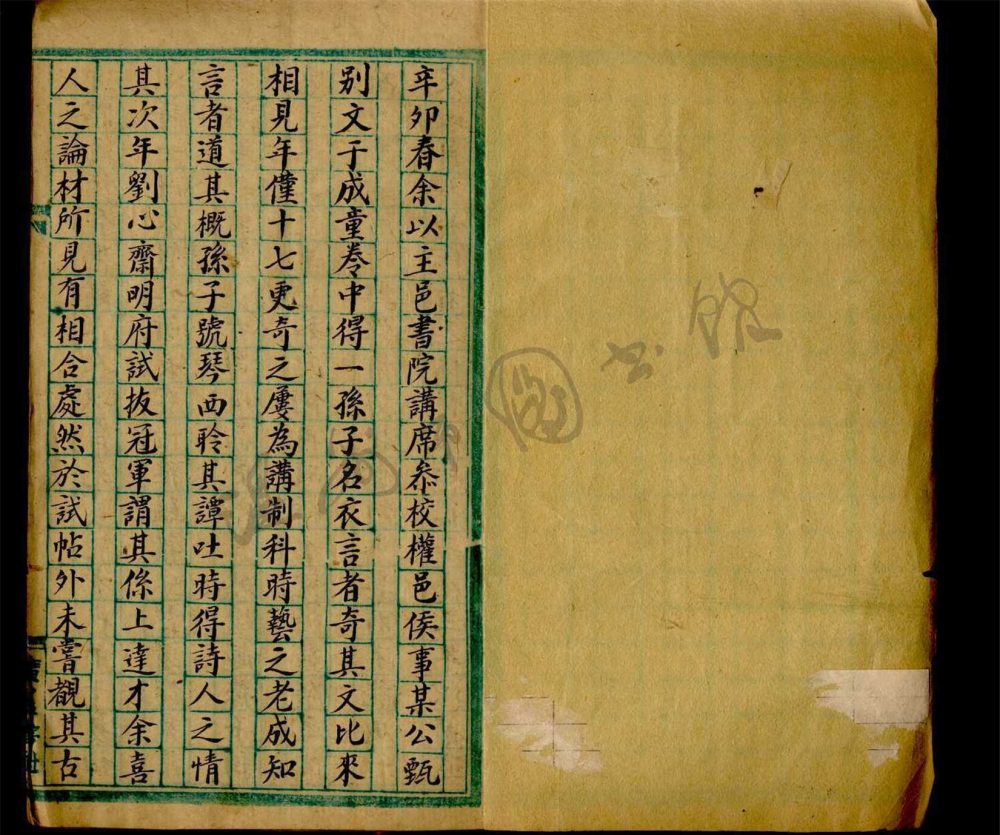 辛卯春余以主邑書院講席叅校權邑侯事某公甄
别文于成童卷中得一孫子名衣言者奇其文比來
相見年僅十七更奇之屢為講制科時藝之老成知
言者道其概孫子號琴西聆其譚吐時得詩人之情
其次年劉心齋明府試抜冠軍謂其係上達才余喜
人之論材所見有相合處然於試帖外未嘗覩其古
圖書館